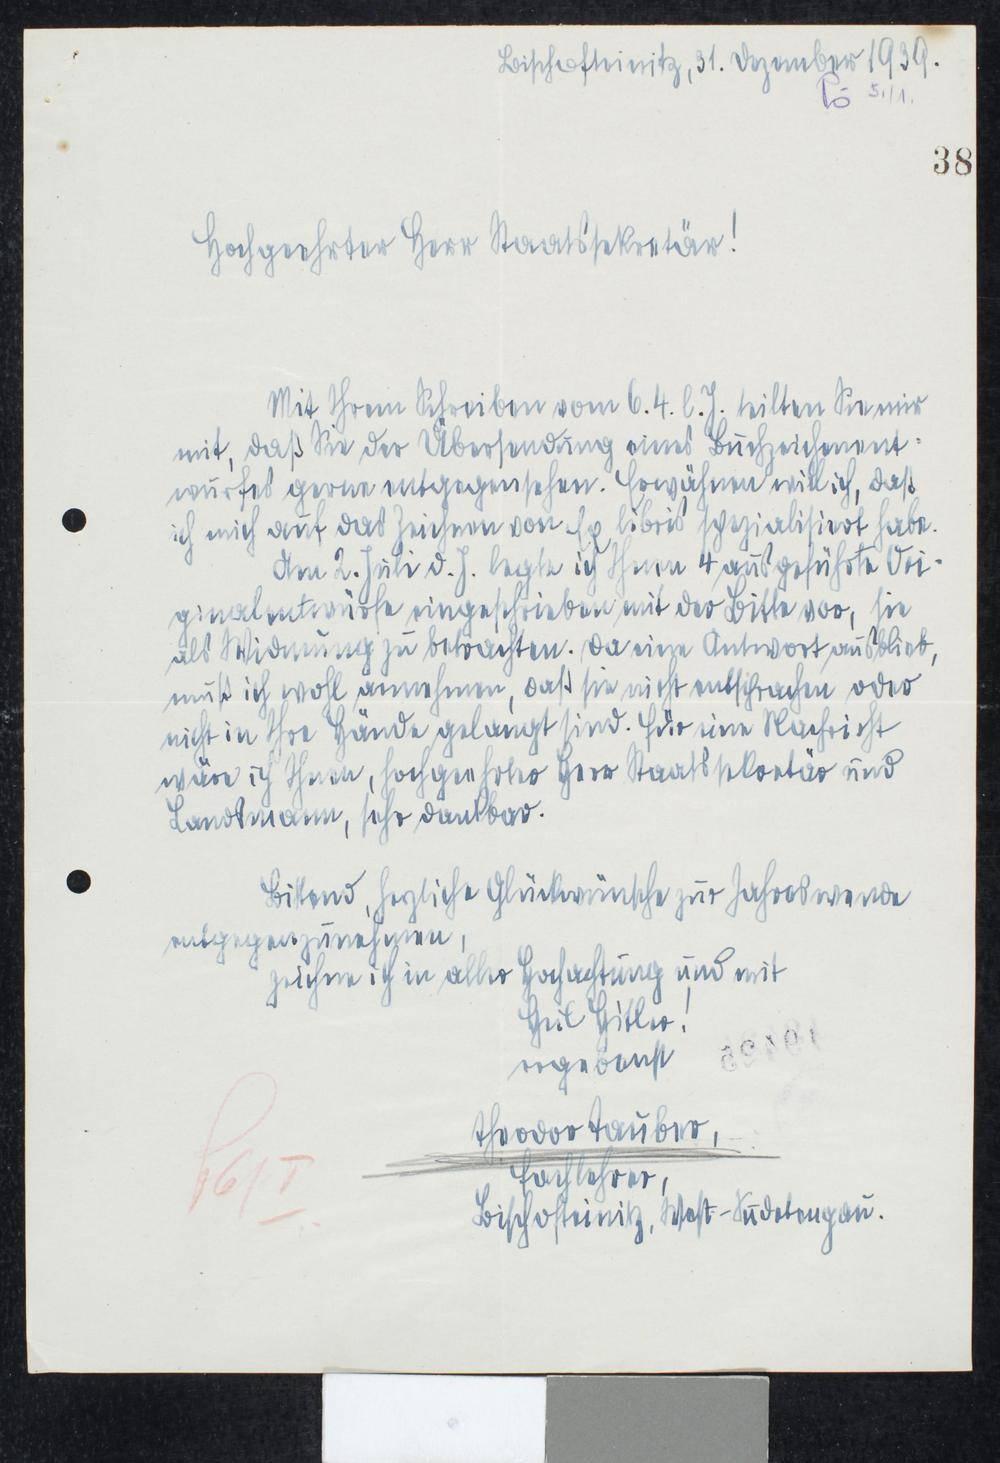 Bischofteinitz, 31. Dezember 1939.
Pö 5./1.
38
Hochgeehrter Herr Staatssekretär!
Mit Ihrem Schreiben vom 6. 4. l. J. teilten Sie mir
mit, daß Sie der Übersendung eines Buchzeichenent-
wurfes gerne entgegensehen. Erwähnen will ich, daß
ich mich auf das Zeichnen von Ex libris spezialisiert habe.
Am 2. Juli d. J. legte ich Ihnen 4 ausgeführte Ori-
ginalentwürfe eingeschrieben mit der Bitte vor, sie
als Widmung zu betrachten. Da eine Antwort ausblieb,
muß ich wohl annehmen, daß sie nicht entsprachen oder
nicht in Ihre Hände gelangt sind. Für eine Nachricht
wäre ich Ihnen, hochgeehrter Herr Staatssekretär und
Landsmann, sehr dankbar.
Bittend, herzliche Glückwünsche zur Jahreswende
entgegenzunehmen,
zeichne ich in aller Hochachtung und mit
Heil Hitler!
ergebenst
Theodor Tauber,
Fachlehrer,
Bischofteinitz, West-Sudetengau.